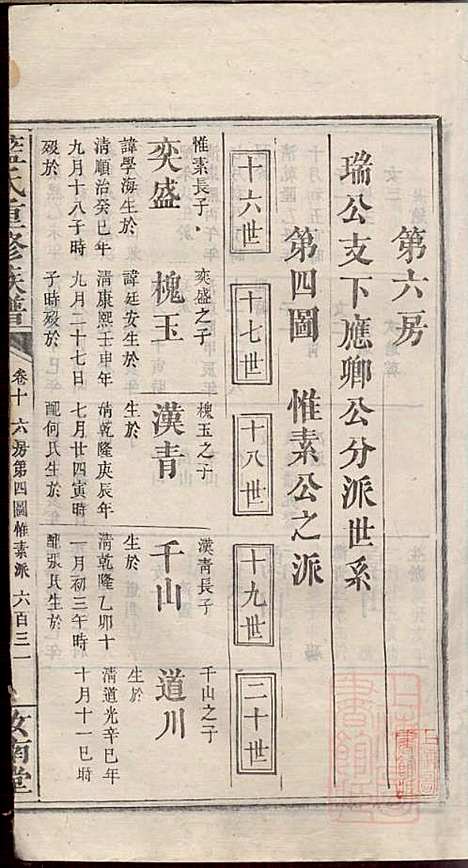 第六房
瑞公支下應卿公分派世系
第四圖 惟素公之派
十六世 十七世 十八世 十九世 二十世
惟素長子 奕盛 諱學海生於
清順治癸巳年
九月十八子時
殁於
奕盛之子 槐玉 諱廷安生於
清康熙壬申年
九月二十七日
子時殁於
槐玉之子 漢青 生於
清乾隆庚辰年
七月廿四寅時
配何氏生於
漢青長子 千山 生於
清乾隆乙卯十
一月初三午時
配張氏生於
千山之子 道川 生於
清道光辛巳年
十月十一巳時
藍氏重修族譜 卷十 六房第四圖惟素派 六百三一 汝南堂